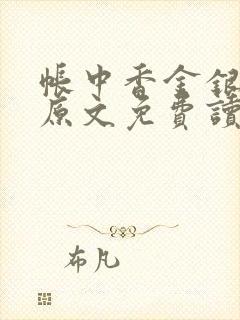 帳中香金銀
原文免費讀
布凡